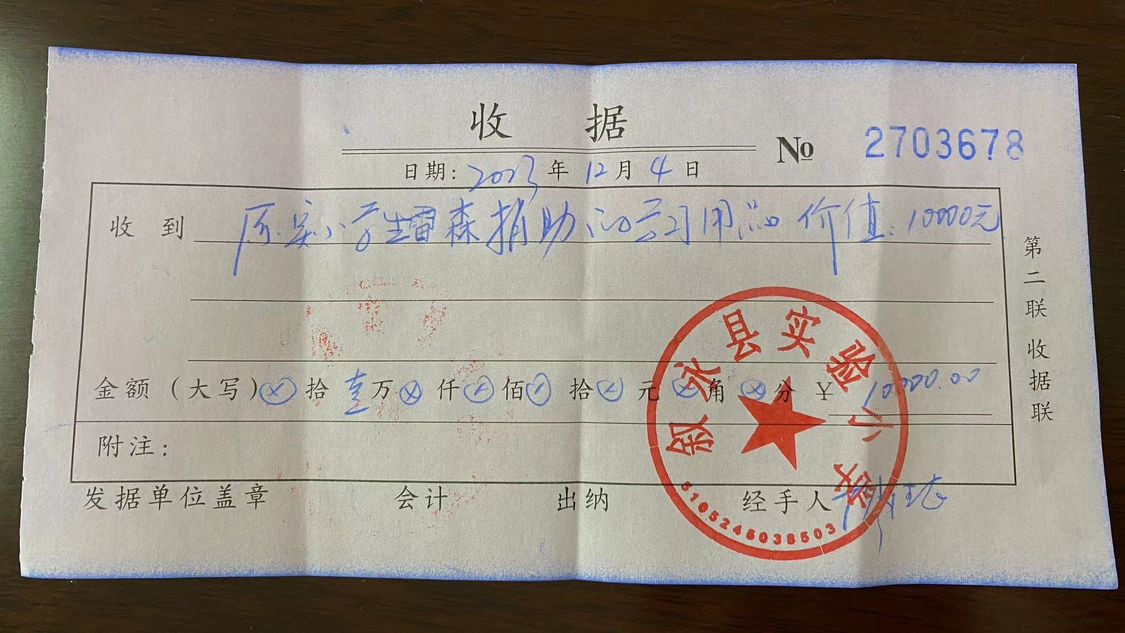 收 据
№ 2703678
日期: 2023 年 12 月 4 日
收 到 原实小学生雷森捐助的学习用品 价值:10000元
金额（大写）ⓧ 拾 壹 万 ⓧ 仟 ⓧ 佰 ⓧ 拾 ⓧ 元 ⓧ 角 ⓧ 分 ¥ 10000.00
附注:
发据单位盖章 会计 出纳 经手人
第二联 收据联
叙永县实验小学